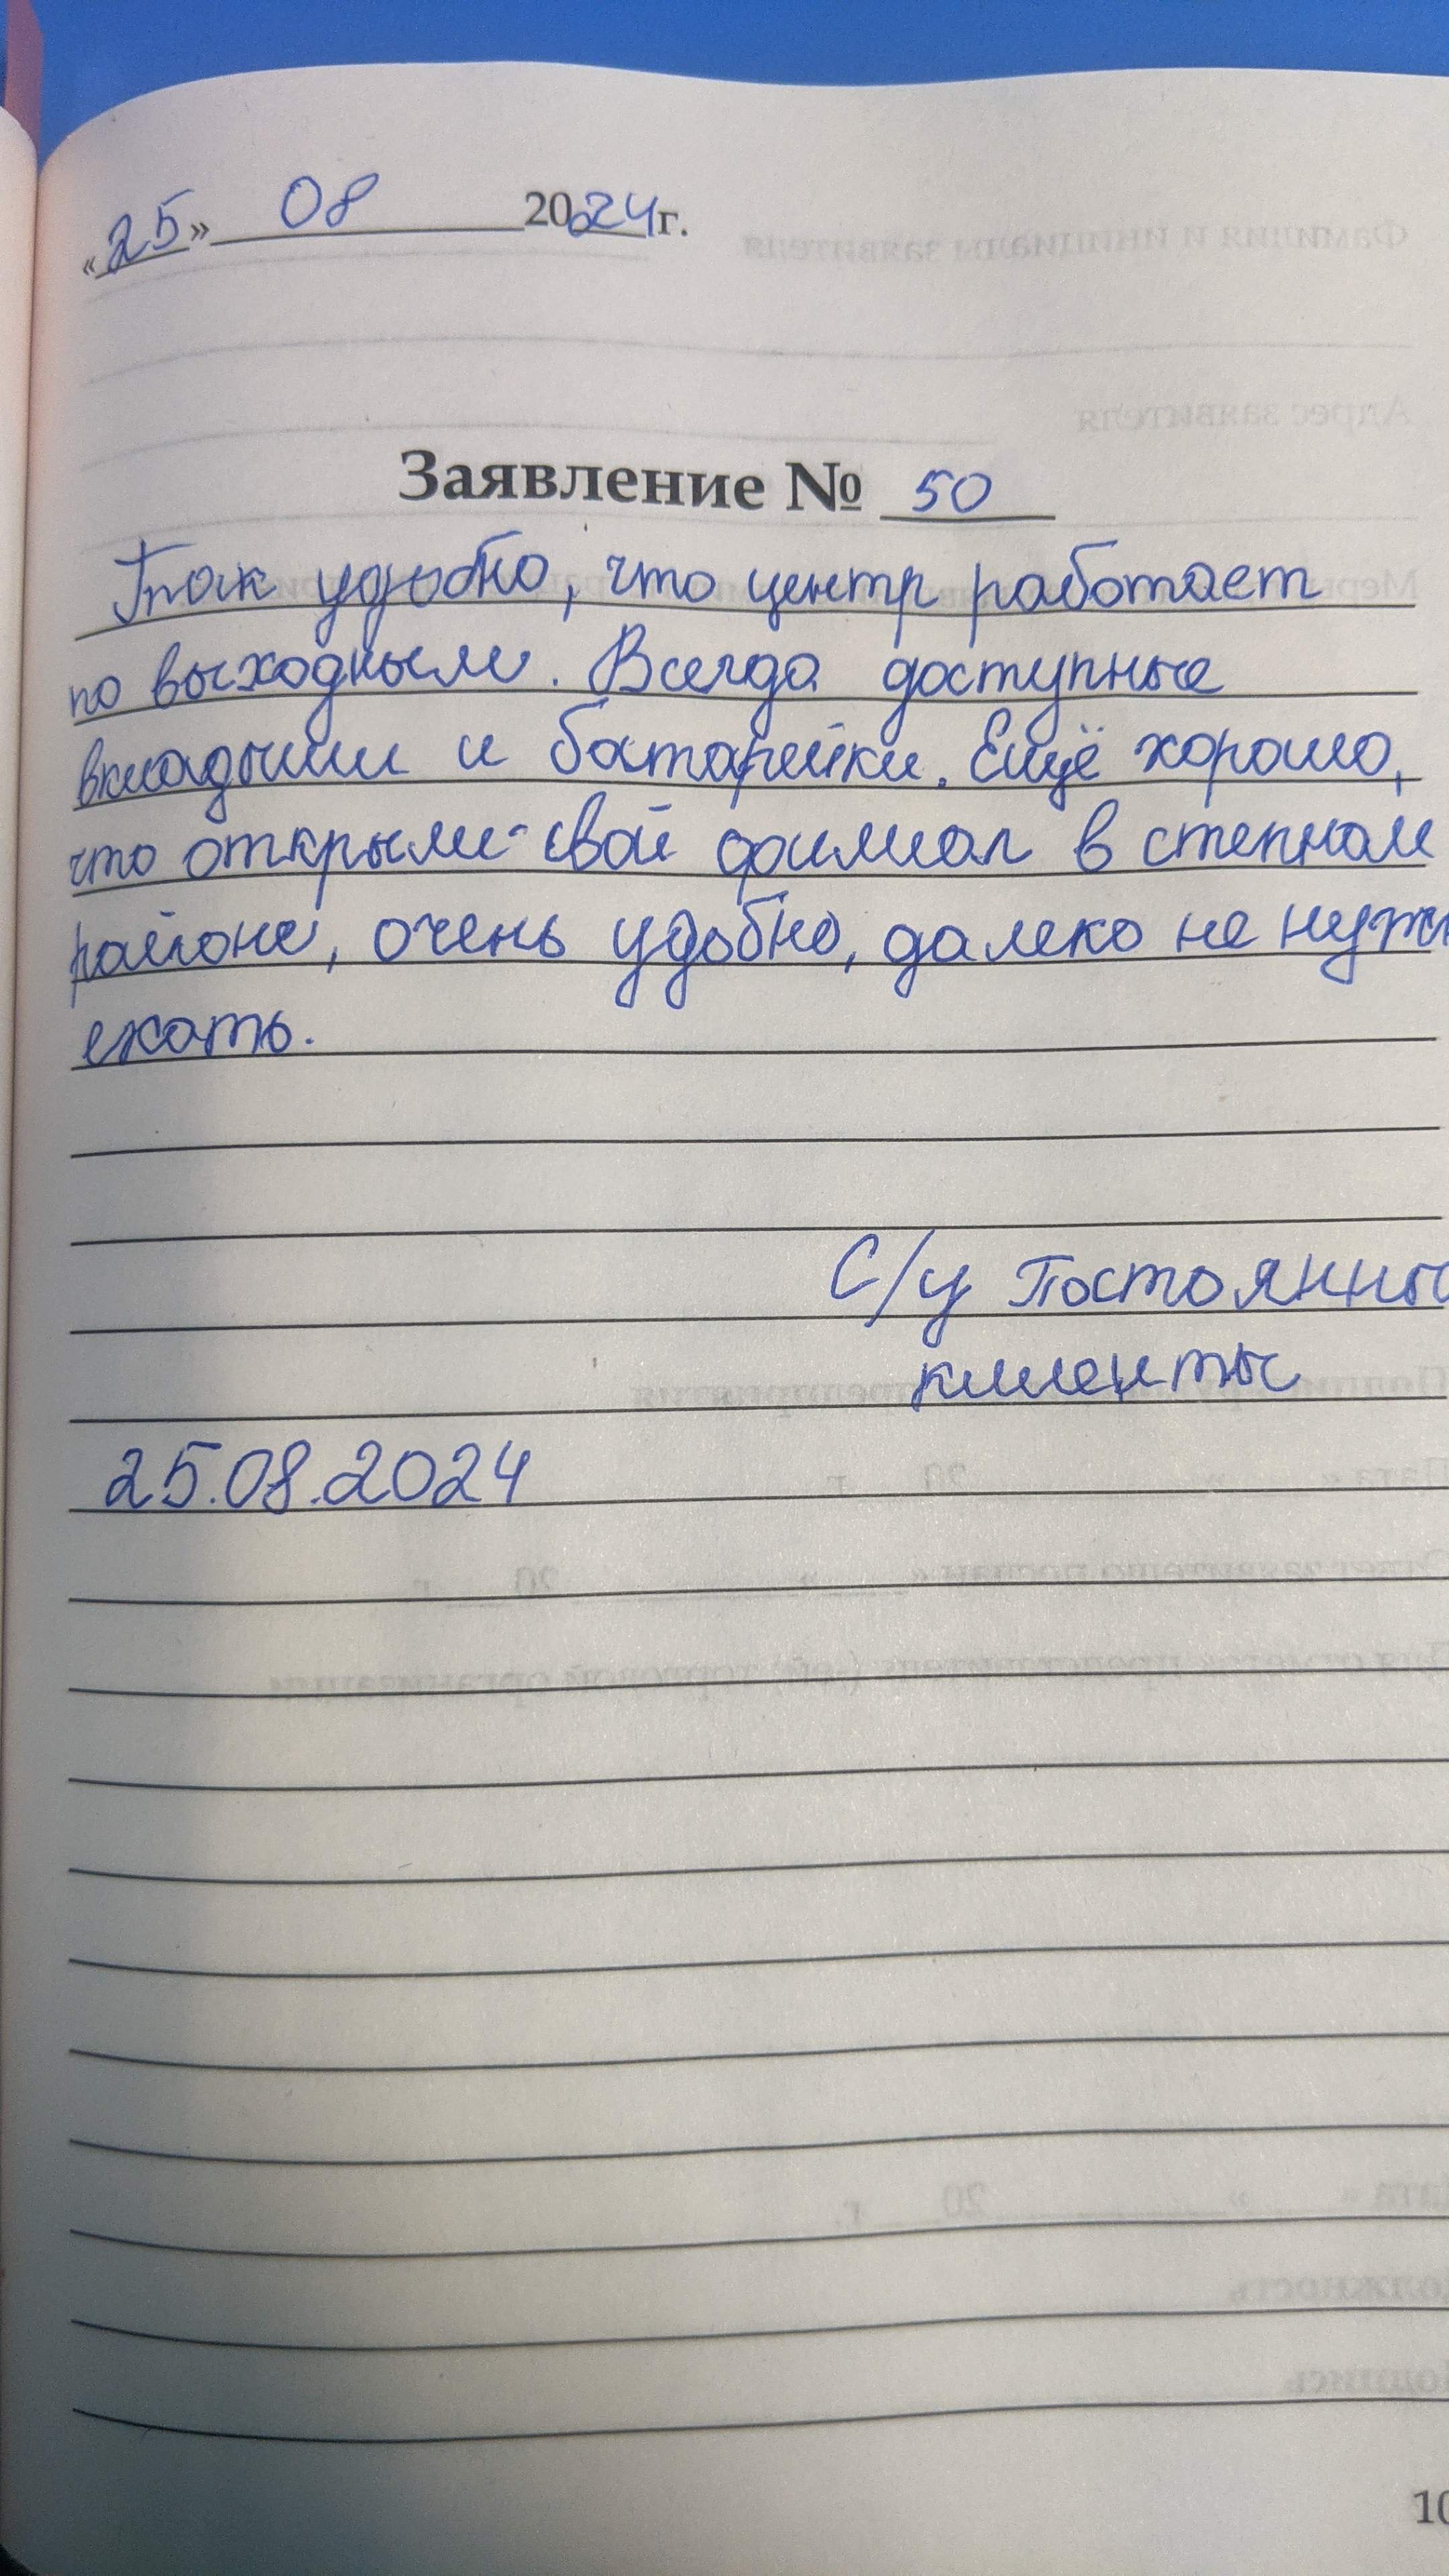 «25» 08 2024г.
Заявление № 50
Так удобно, что центр работает
по выходным. Всегда доступные
вкладыши и батарейки. Ещё хорошо,
что открыли свой филиал в степном
районе, очень удобно, далеко не нужн
ехать.
С/у Постоянны
клиенты
25.08.2024
10